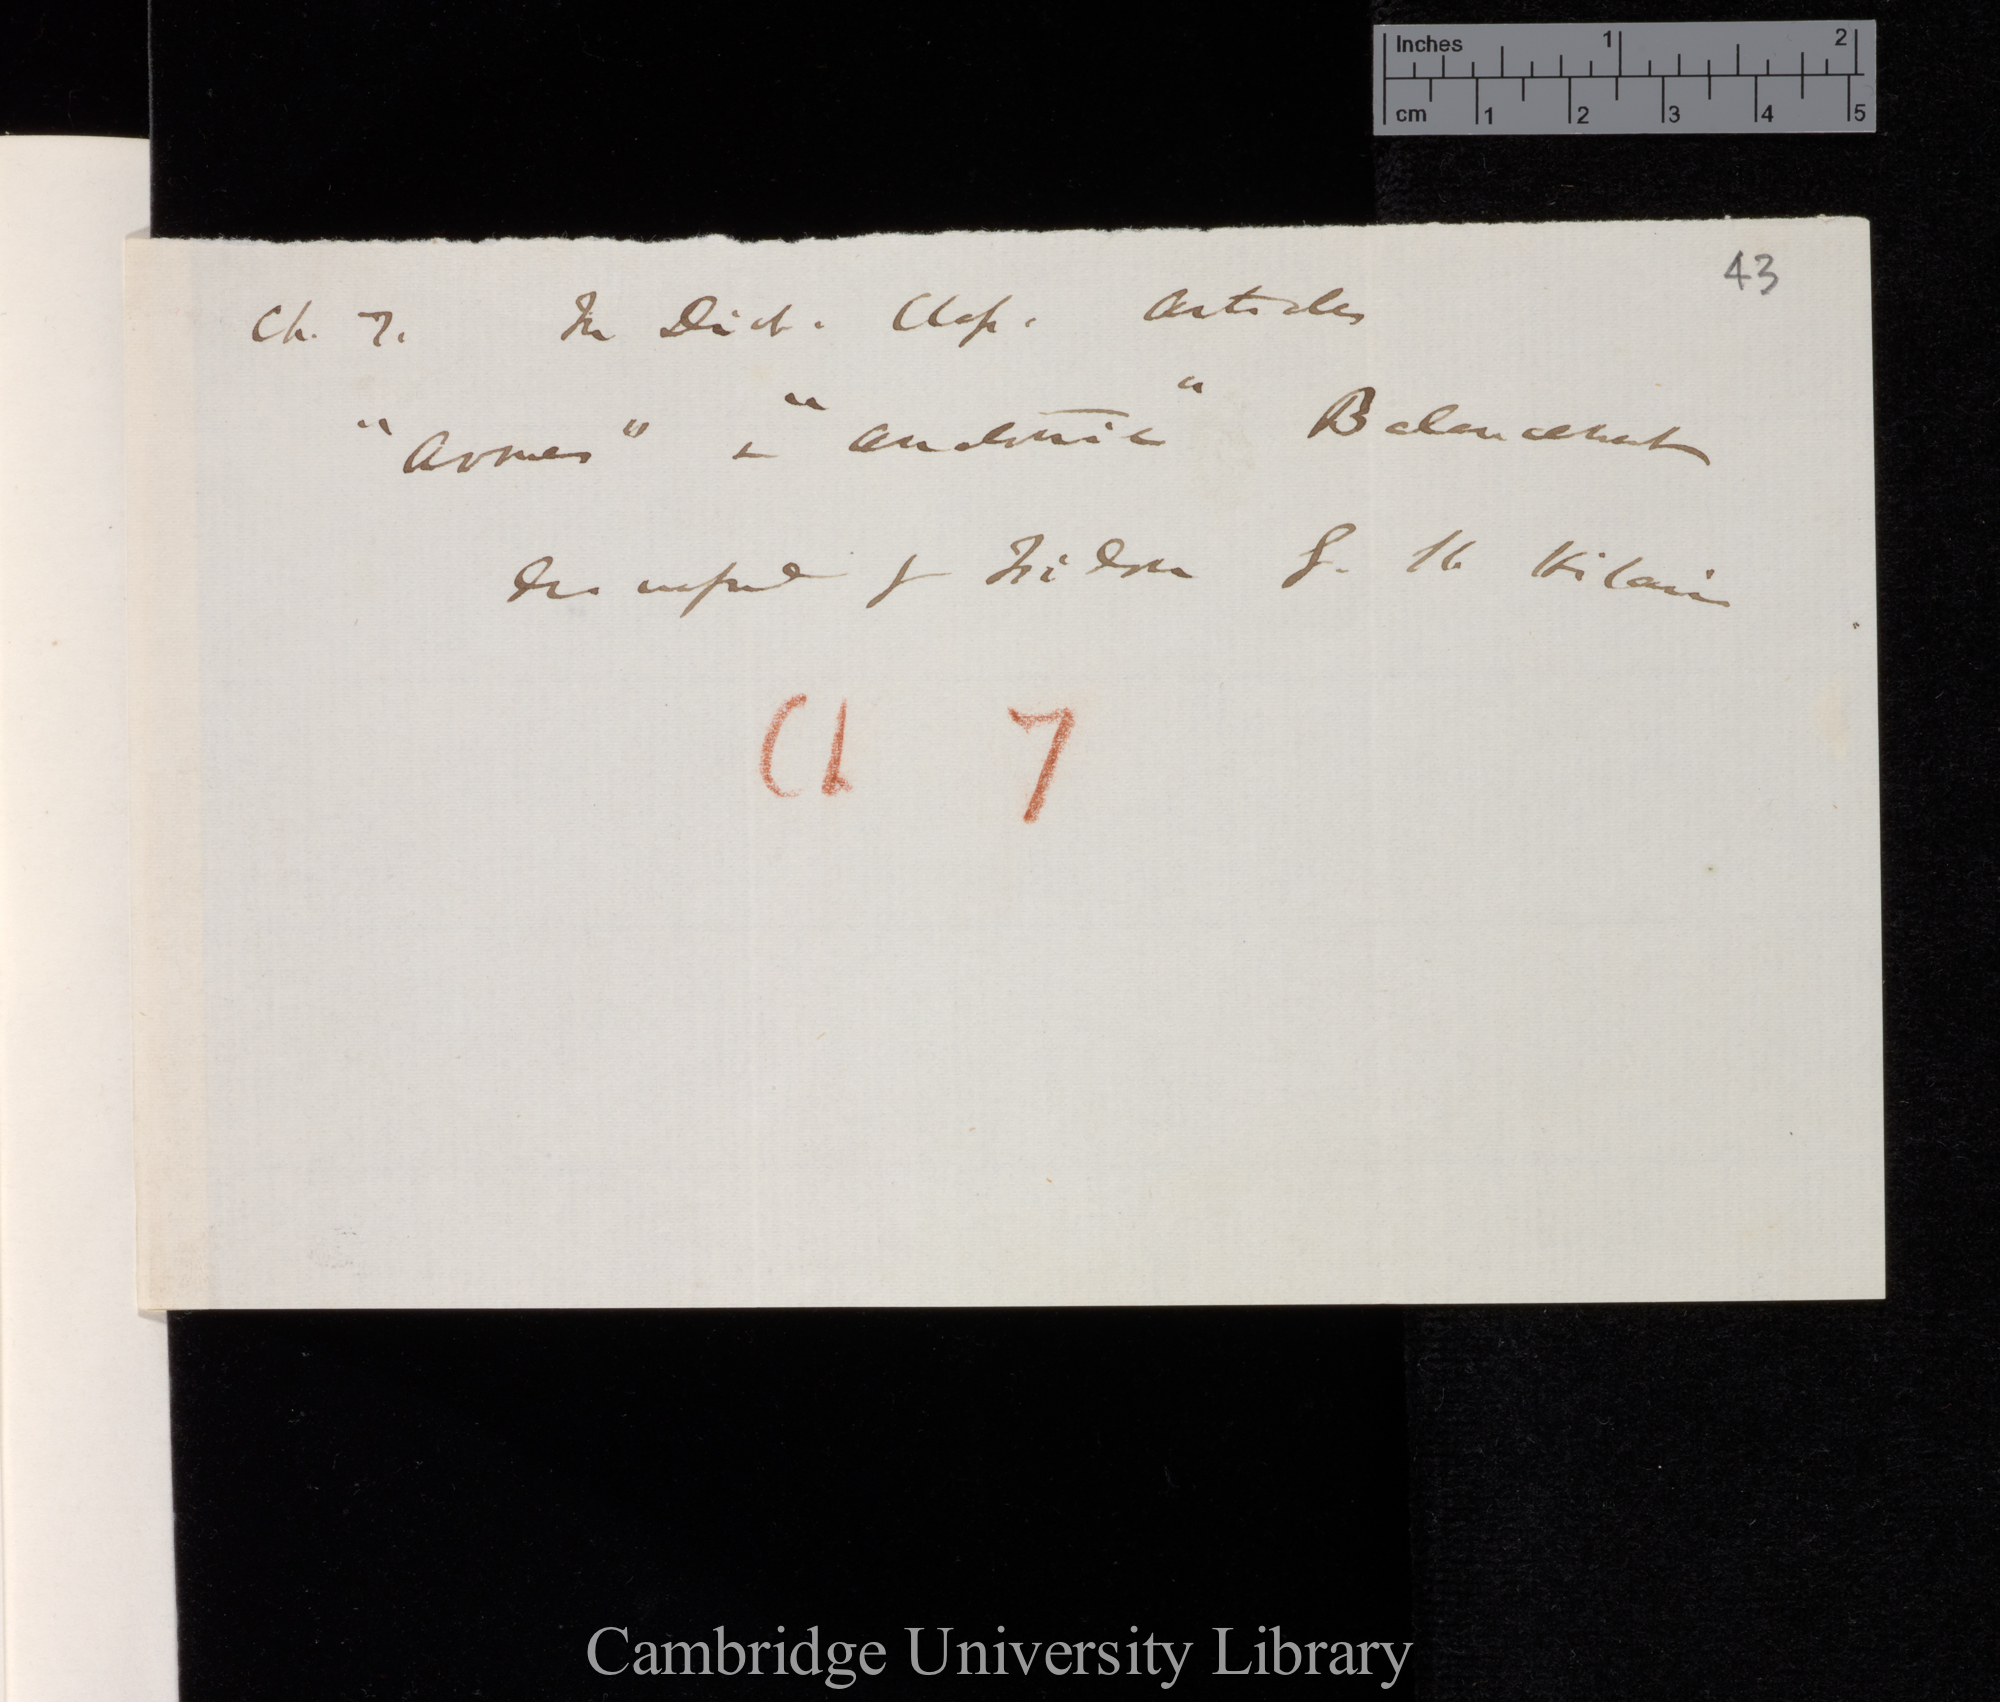 Inches 1 2
cm 1 2 3 4 5
43
Ch. 7. In Dict. Class. Articles
"Armes" & "Anatomie" Balancement
de Isidore G. St Hilaire
Ch 7
Cambridge University Library